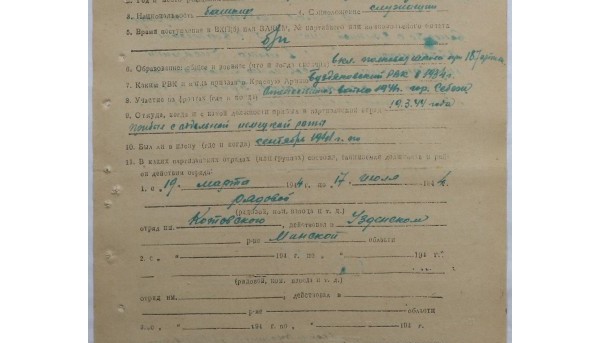 3. Национальность башкир 4. С. положение служащий
5. Время вступления в ВКП(б) или ВЛКСМ, № партийного или комсомольского билета
б/п
6. Образование: общее и военное (что и когда окончил)
7. Каким РВК и когда призван в Красную Армию РВК в 1934 г.
8. Участие на фронтах (где и когда) Отечественной война 1941 г. гор.
19.3.44 года
9. Откуда, когда и с какой должности прибыл в партизанский отряд
Прибыл с отдельной рота
10. Был ли в плену (где и когда) сентября 1941 г. по
11. В каких партизанских отрядах (или группах) состоял, занимаемая должность и рай-
он действия отряда:
1. с „ 19 „ марта 194 4 г. по „ 17 „ июля 194 4
рядовой
(рядовой, ком. взвода и т. д.)
отряд им. Котовского, действовал в Узденском
районе Минской области
2. с „ „ 194 г. по „ „ 194 г.
(рядовой, ком. взвода и т. д.)
отряд им. , действовал в
районе области
3. с „ „ 194 г. по „ „ 194 г.